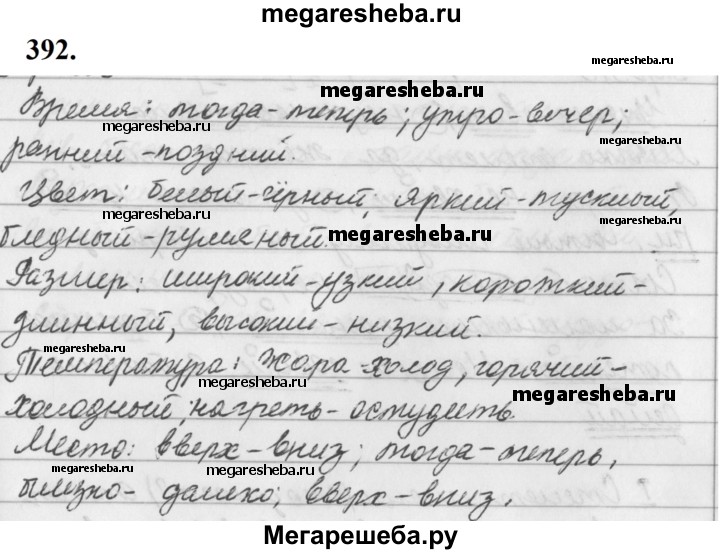 megaresheba.ru
392.
megaresheba.ru
megaresheba.ru
Время: тогда-теперь; утро-вечер;
megaresheba.ru
ранний-поздний.
Цвет: белый-чёрный; яркий-тусклый,
megaresheba.ru
megaresheba.ru
бледный-румяный.
megaresheba.ru
Размер: широкий-узкий, короткий-
длинный, высокий-низкий.
megaresheba.ru
Температура: жара-холод, горячий-
megaresheba.ru
megaresheba.ru
холодный; нагреть-остудить.
Место: вверх-вниз; тогда-теперь,
megaresheba.ru
megaresheba.ru
близко-далеко; вверх-вниз.
Мегарешеба.ру